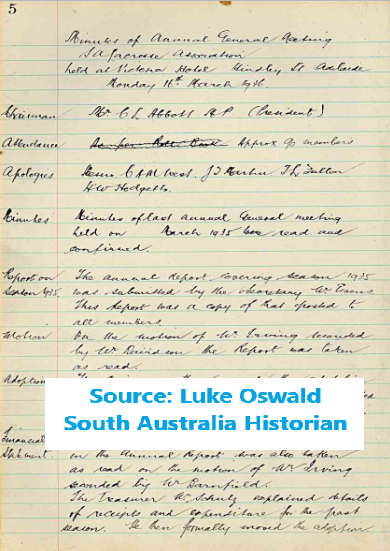 5
Minutes of Annual General Meeting
S A Lacrosse Association
held at Victoria Hotel Hindley St Adelaide
Monday 16th March 1936.
Chairman Mr C L Abbott M P (President)
Attendance Approx 90 members
Apologies Messrs C & M West. J J Martin T L Fulton
H W Hodgetts.
Minutes Minutes of last annual General meeting
held on March 1935 were read and
confirmed.
Report on The Annual Report covering season 1935
Season 1935. was submitted by the Secretary Mr
This Report was a copy of that posted to
all members
Motion On the motion of Mr Irving seconded
by Mr Davidson the Report was taken
as read.
Adoption
Source: Luke Oswald
South Australia Historian
Financial
Statement in the Annual Report was also taken
as read on the motion of Mr Irving
seconded by Mr Barnfield.
The Treasurer Mr Schulz explained details
of receipts and expenditure for the past
season. He then formally moved the adoption